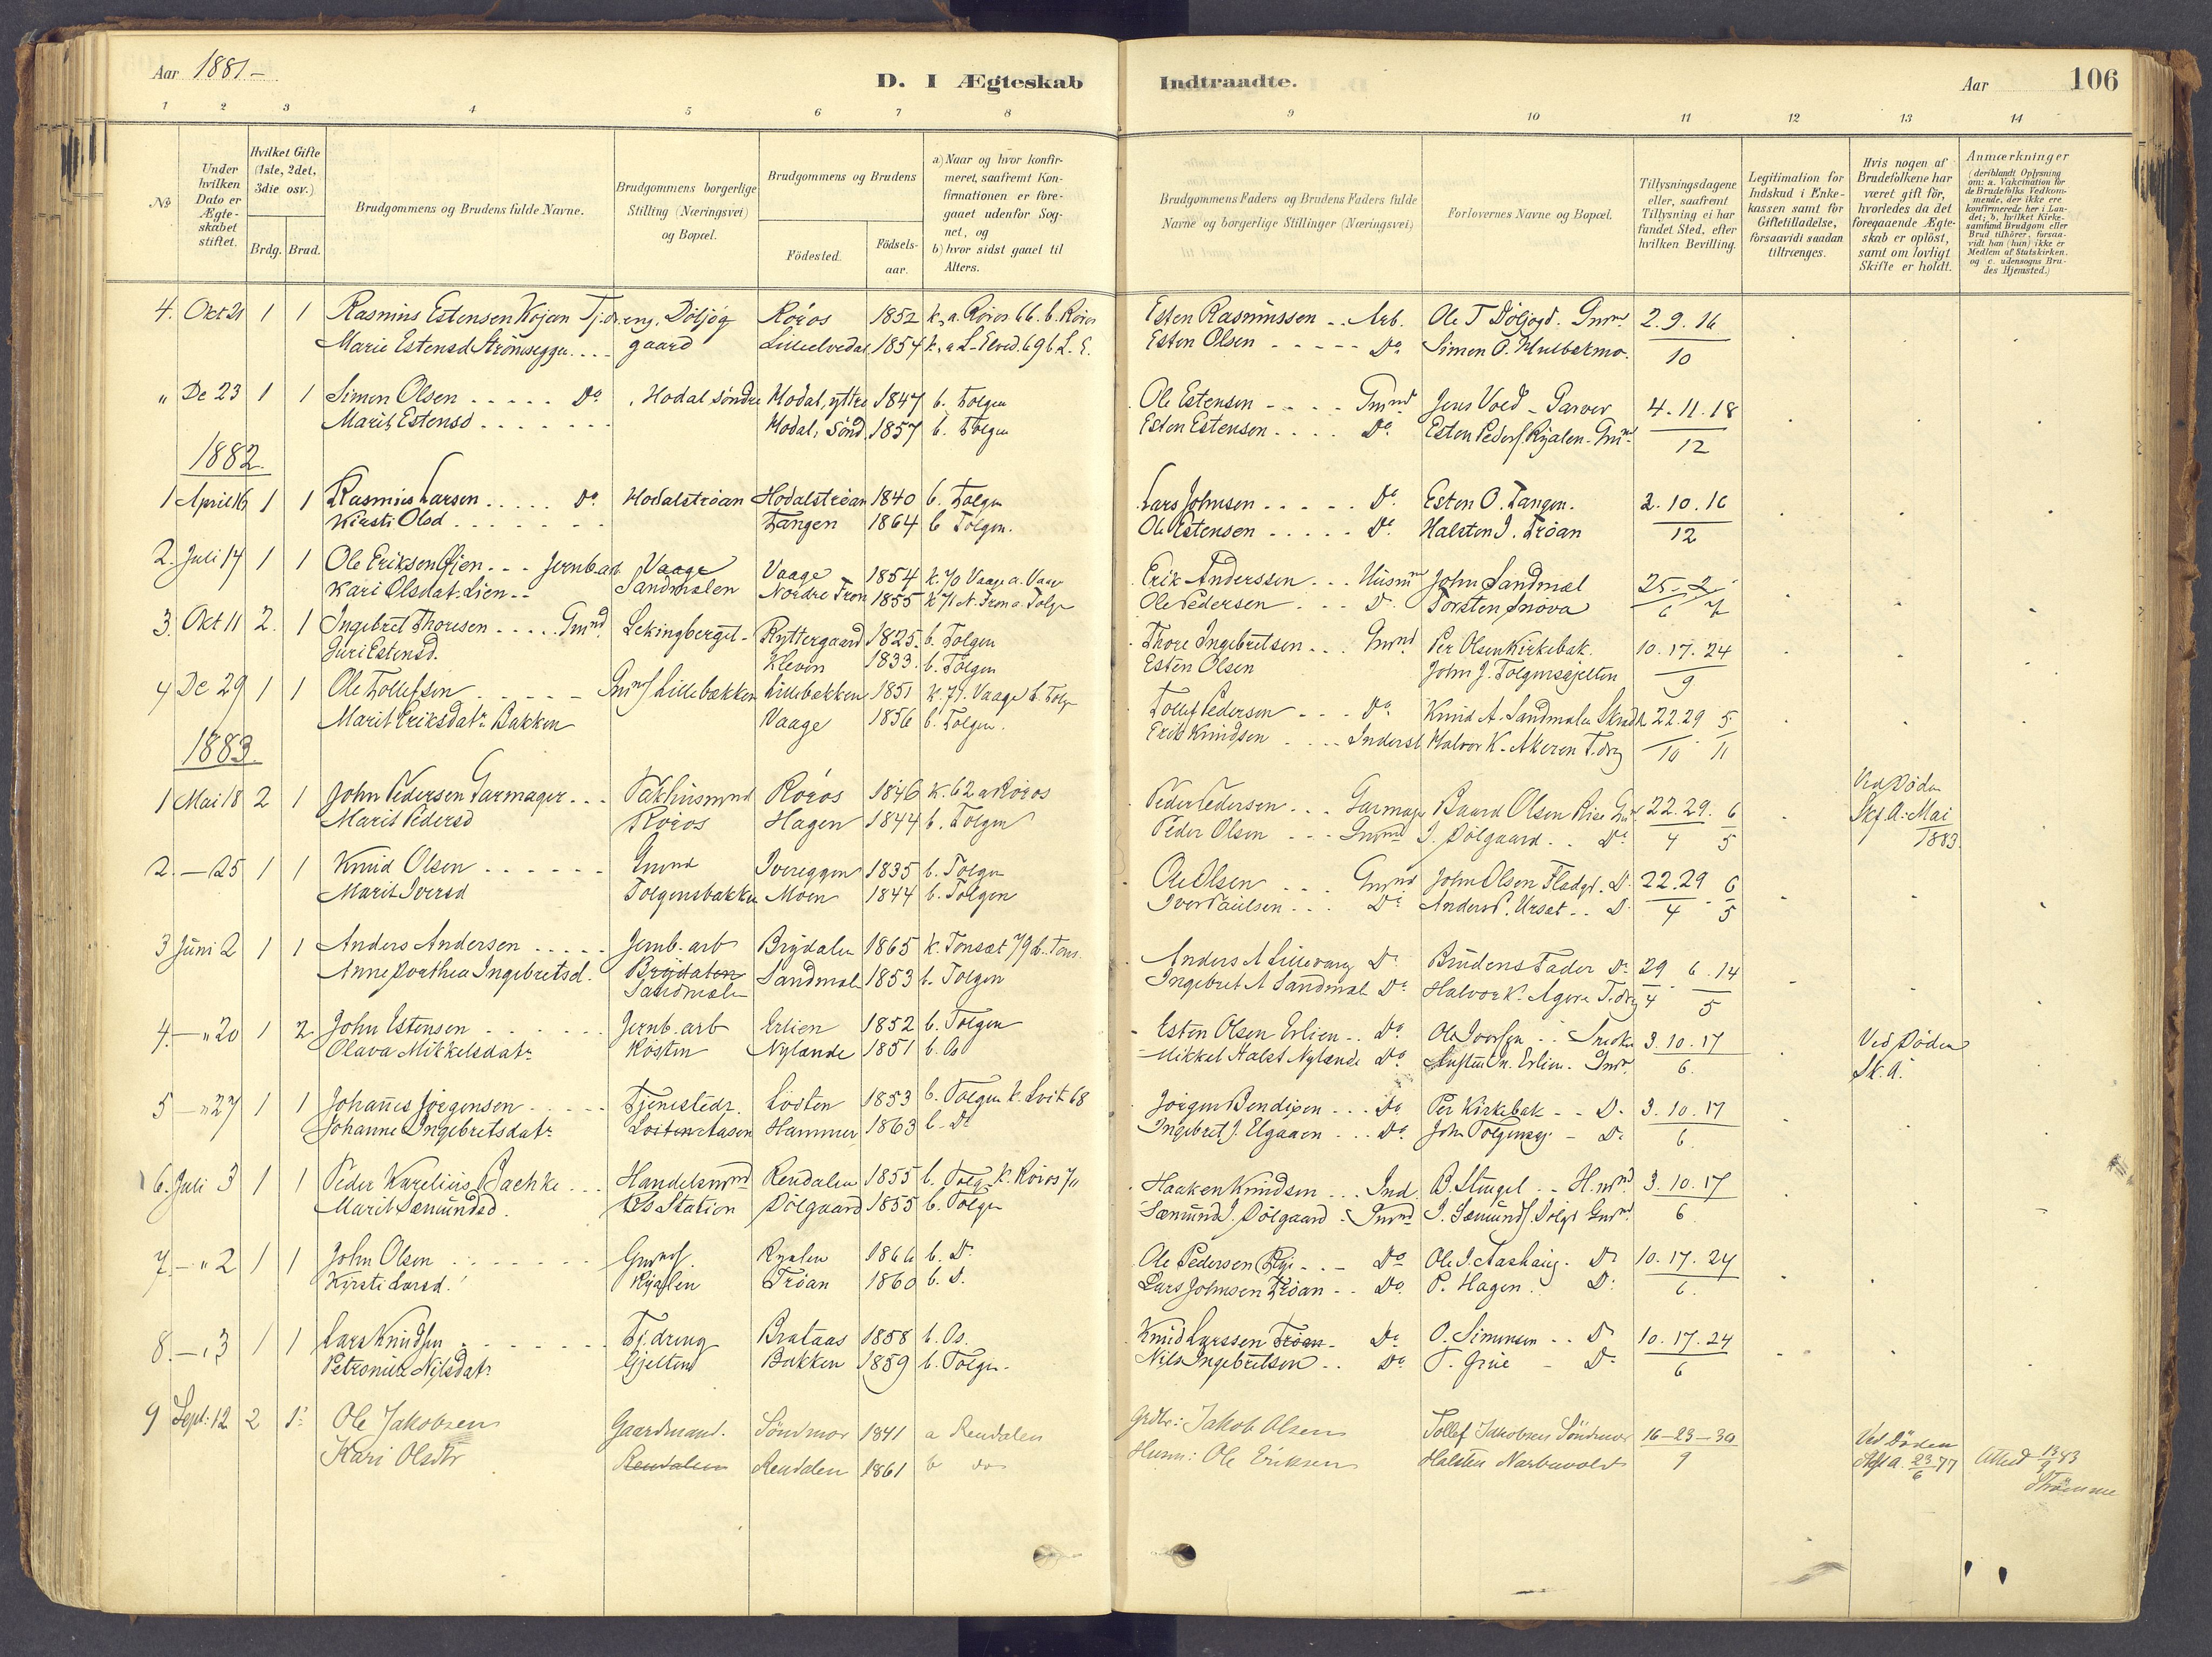 Aar 1881 –
D. I Ægteskab Indtraadte.
Aar
106
1 2 3 4 5 6 7 8 9 10 11 12 13 14
No
Under hvilken Dato er Ægteskabet stiftet.
Hvilket Gifte (1ste, 2det, 3die osv.)
Brdg. Brud.
Brudgommens og Brudens fulde Navne.
Brudgommens borgerlige Stilling (Næringsvei) og Bopæl.
Brudgommens og Brudens
Födested.
Födselsaar.
a) Naar og hvor konfirmeret, saafremt Konfirmationen er foregaaet udenfor Sognet, og
b) hvor sidst gaaet til Alters.
Brudgommens Faders og Brudens Faders fulde Navne og borgerlige Stillinger (Næringsvei)
Forlovernes Navne og Bopæl.
Tillysningsdagene eller, saafremt Tillysning ei har fundet Sted, efter hvilken Bevilling.
Legitimation for Indskud i Enkekassen samt for Giftetilladelse, forsaavidt saadan tiltrænges.
Hvis nogen af Brudefolkene har været gift för, hvorledes da det foregaaende Ægteskab er oplöst, samt om lovligt Skifte er holdt.
Anmærkninger (deriblandt Oplysning om: a. Vakcination for de Brudefolks Vedkommende, der ikke ere konfirmerede her i Landet; b. hvilket Kirkesamfund Brudgom eller Brud tilhörer, forsaavidt han (hun) ikke er Medlem af Statskirken. og c. udensogns Brudes Hjemsted.)
4. Okt 21 1 1 Rasmus Estensen Kojan Tj.dreng. Döljög Röros 1852 k, a. Röros 66. b. Röros Esten Rasmussen .. Arb. Ole T Döljogd. Gmnd 2. 9. 16
Marie Estensd Strömseggen.... gaard Lilleelvedal 1854 k, a L-Elved. 69 b L. E. Esten Olsen ..... Do Simon O. Hulbakmo. 10
" De 23 1 1 Simon Olsen ..... Do Hodal söndre Hodal, yttre 1847 b. Tolgen Ole Estensen .... Gmnd Jens Voed - Garver 4. 11. 18
Marit Estensd ....... Hodal, Sönd. 1857 b. Tolgen Esten Estensen .... Do Esten Peders. Ryalen. Gmnd 12
1882.
1 April 16 1 1 Rasmus Larsen ..... Do Hodalströan Hodalströan 1840 b. Tolgen Lars Johnsen ..... Do Esten O. Tangen. 2. 10. 16
Kirsti Olsd ....... Tangen 1864 b Tolgen. Ole Estensen ..... Do Halsten J. Tröan 12
2. Juli 14 1 1 Ole Eriksen Öien ... Jernb.arb Vaage Vaage 1854 k. 70 Vaage a. Vaage Erik Anderssen ... Husmnd John Sandmæl 25 – 2
Kari Olsdat. Lien -- Sandmælen Nordre Fron 1855 k 71 N. Fron a. Tolge Ole Pedersen ... D. Torsten Snova 6 7
3. Okt 11 2. 1 Ingebret Thoresen .... Gmnd. Lekingberget Ryttergaard 1825. b. Tolgen Thore Ingebretsen ... Gmnd Per Olsen Kirkebak. 10. 17. 24
Guri Estensd. Kleven 1833. b. Tolgen Esten Olsen John J. Tolgensgjelten 9
4 De 29 1 1 Ole Tollefsen ..... Gmnd Lillebækken Lillebækken 1851 k. 71. Vaage b. Tolge Tollef Pedersen ... Do Knud A. Sandmælen Skrædr 22. 29 5
Marit Eriksdatr Bakken Vaage 1856 b. Tolgen. Erik Knudsen .... Inderst Halvor K. Akeren T.drg 10 11
1883.
1 Mai 18 2 1 John Pedersen Garmager ... Pakhusmnd Röros 1846 k. 62 a Röros Peder Pedersen ... Garmager Baard Olsen Rise Gmd 22. 29. 6 Ved Döden
Marit Pedersd Röros Hagen 1844 b. Tolgen Peder Olsen ... Gmnd J. Dölgaard .. Do 4 5 Skf. A. Mai 1883.
2. — 25 1 1 Knud Olsen ...... Gmnd Ivereggen 1835 b. Tolgen Ole Olsen ... Gmnd John Olsen Fladgd. D. 22. 29 6
Marit Iversd Tolgensbakken Moen 1844 b. Tolgen Iver Paulsen ... Do Anders P. Ursæt .. D. 4 5
3 Juni 2 1 1 Anders Andersen ..... Jernb. arb Brydalen 1865 k. Tonsæt 79 b. Tons. Anders A Lillevang Do Brudens Fader Do 29 6. 14
Anne Dorthea Ingebretsd. Brydalen Sandmælen 1853 b. Tolgen Ingebret A Sandmæl Do Halvor K. Agere T.drg 4 5
Sandmælen
4. — " 20 1 2 John Estensen ...... Jernb. arb Erlien 1852 b. Tolgen Esten Olsen Erlien .. Do Ole Iversen .. Snedker 3. 10. 17 Ved Döden
Olava Mikkelsdatr Kösten Nylænde 1851 b. Os Mikkel Halst Nylænde Do Erlien. Gmd. 6. Sk. A.
5 — " 27 1 1 Johannes Jörgensen ..... Tjenestedr. Löiten 1853 b. Tolgen k. Löit. 68 Jörgen Bendixen ... Do Per Kirkebak -- D. 3. 10. 17
Johanne Ingebretsdatr Löiten Aasen Hammer 1863 b. Do Ingebret J. Elgaaen ... Do John Tolgensgj – D. 6.
6. Juli 3 1 1 Peder Karelius Bachke ... Handelsmnd Rendalen 1855 b. Tolg. k. Röros 70 Haaken Knudsen ... Ind. B. Stengel .. H.mnd 3. 10. 17
Marit Sæmundsd. Os Station Dölgaard 1855 b. Tolgen Sæmund J. Dölgaard . Gmnd J. Sæmunds. Dölgd Gmd. 6
7. — " 2 1 1 John Olsen ....... Gmnd. Ryalen 1866 b. Do Ole Pedersen Rye ... Do Ole J. Aashaug. D. 10. 17. 24
Kirsti Larsd. Ryalen Tröan 1860 b. D. Lars Johnsen Tröan .. Do P. Hagen .. D. 6.
8. — " 3 1 1 Lars Knudsen ....... Tj. dreng Brataas 1858 b. Os. Knud Larssen Tröan. Do O. Simensen .. D. 10. 17. 24
Petronille Nilsdatr Gjelten Bakken 1859 b. Tolgen. Nils Ingebretsen .. Do T. Grue – D. 6
9 Sept: 12 2 1 Ole Jakobsen Gaardmand. Söndmor 1841 a Rendalen Grdbr: Jakob Olsen Tollef Jakobsen Söndmor 16 – 23 – 30 Ved Döden
Kari Olsdtr Rendalen Rendalen 1861 b do Husm: Ole Eriksen Halsten Narbuvold 9 Skft a. 23/6 77 Attest 13/9 83